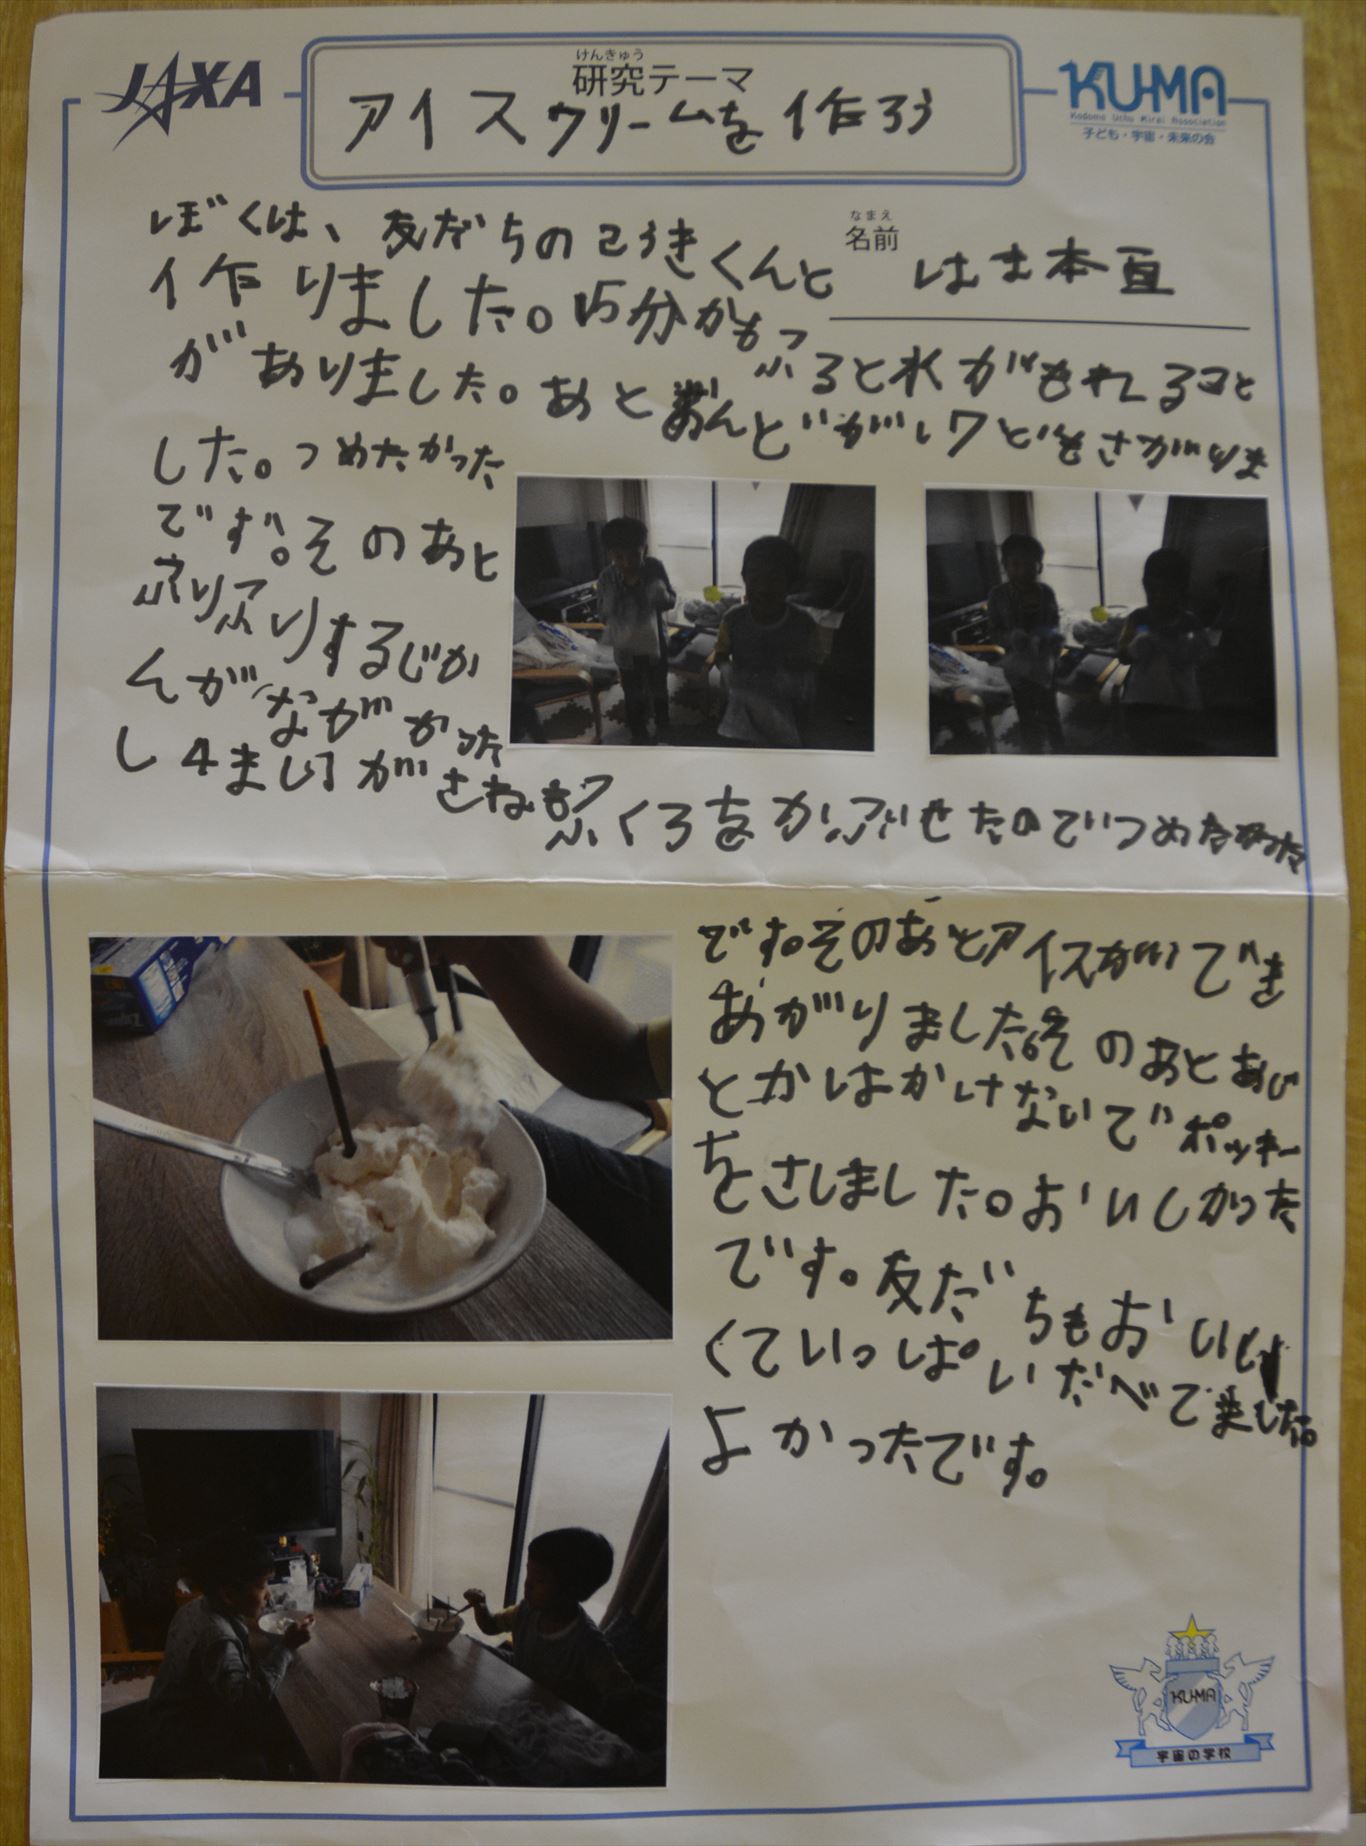 JAXA
けんきゅう
研究テーマ
アイスクリームを作ろう
KU-MA
Kodomo Uchu Mirai Association
子ども・宇宙・未来の会
なまえ
名前
はま本亘
ぼくは、友だちのこうきくんと
作りました。15分かもふると水がもれること
がありました。あとおんどが17どもさがりま
した。つめたかった
です。そのあと
ふりふりするじか
んがながかった
し4まい
がさねもふくろをかぶせたのでつめたかった
です。そのあとアイスができ
あがりました。そのあとあじ
とかはかけないでポッキー
をさしました。おいしかった
です。友だちもおいし
くていっぱいだべてました。
よかったです。
KU-MA
宇宙の学校